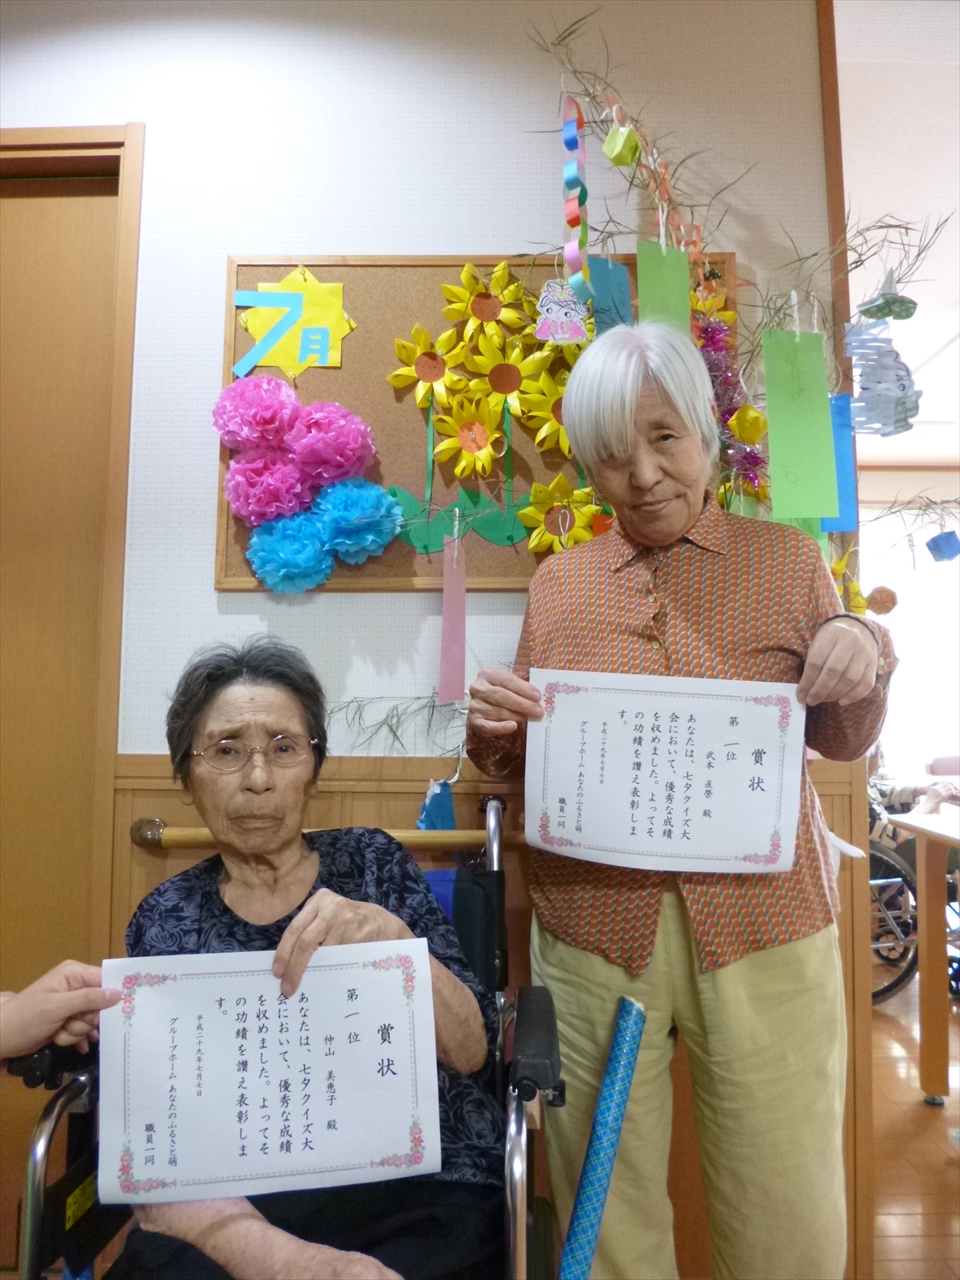 7月
賞状
第一位
武本 直榮 殿
あなたは、七夕クイズ大
会において、優秀な成績
を収めました。よってそ
の功績を讃え表彰しま
す。
平成二十九年七月七日
グループホーム あなたのふるさと萌
職員一同
賞状
第一位
仲山 美恵子 殿
あなたは、七夕クイズ大
会において、優秀な成績
を収めました。よってそ
の功績を讃え表彰しま
す。
平成二十九年七月七日
グループホーム あなたのふるさと萌
職員一同